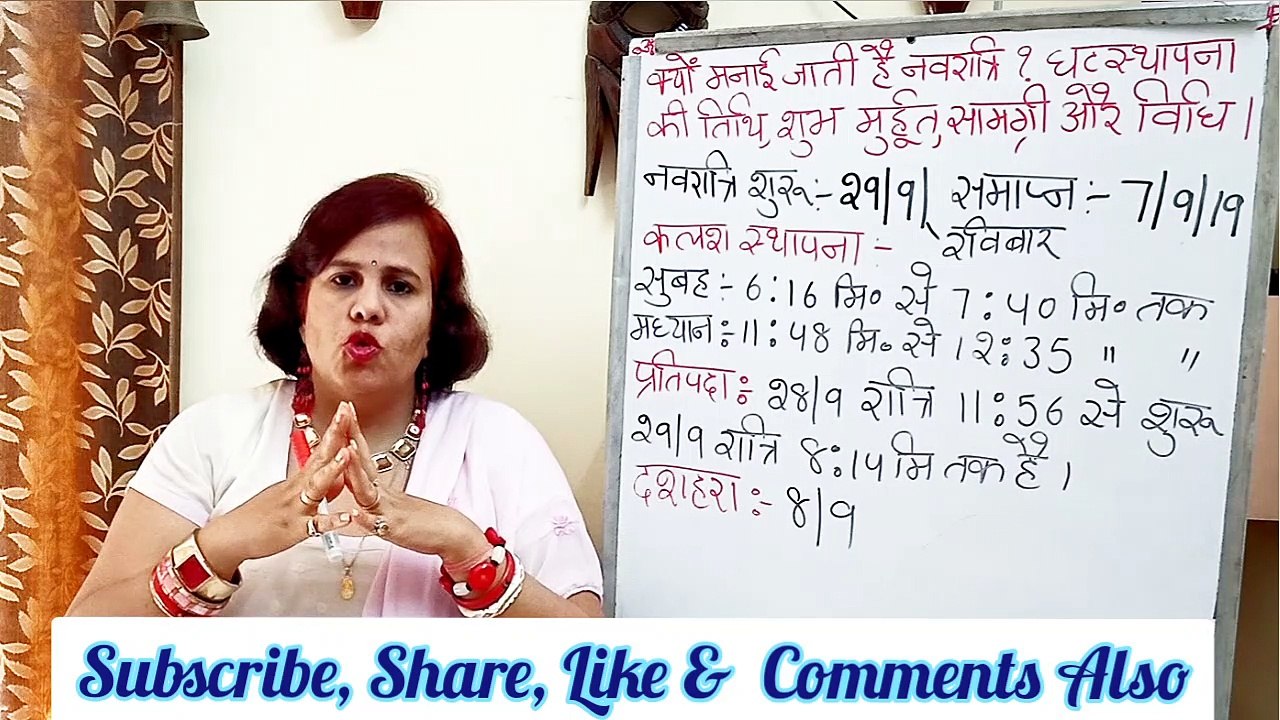 क्यों मनाई जाती है नवरात्रि ? घटस्थापना
की तिथि, शुभ मुर्हूत, सामग्री और विधि ।
नवरात्रि शुरू:- २९/९/ समाप्न:- 7/9/19
कलश स्थापना:- रविबार
सुबह:- 6:16 मि० से 7:40 मि० तक
मध्यान:- 11:48 मि० से 12:35 " "
प्रतिपदा:- २8/९ रात्रि 11:56 से शुरू
२९/९ रात्रि 8:14 मि तक है ।
दशहरा:- 8/९
Subscribe, Share, Like & Comments Also